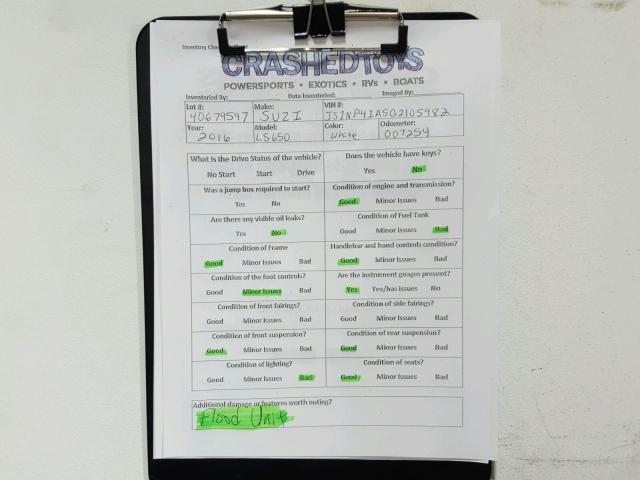 Inventory
CRASHEDTOYS
POWERSPORTS • EXOTICS • RVs • BOATS
Inventoried By: Date Inventoried: Imaged By:
Lot #: Make: VIN #:
40679597 SUZI JS1NP41A5G2105982
Year: Model: Color: Odometer:
2016 LS650 White 007254
What is the Drive Status of the vehicle? Does the vehicle have keys?
No Start Start Drive Yes No
Was a jump box required to start? Condition of engine and transmission?
Yes No Good Minor Issues Bad
Are there any visible oil leaks? Condition of Fuel Tank
Yes No Good Minor Issues Bad
Condition of Frame Handlebar and hand controls condition?
Good Minor Issues Bad Good Minor Issues Bad
Condition of the foot controls? Are the instrument guages present?
Good Minor Issues Bad Yes Yes/has issues No
Condition of front fairings? Condition of side fairings?
Good Minor Issues Bad Good Minor Issues Bad
Condition of front suspension? Condition of rear suspension?
Good Minor Issues Bad Good Minor Issues Bad
Condition of lighting? Condition of seats?
Good Minor Issues Bad Good Minor Issues Bad
Additional damage or features worth noting?
Flood Unit